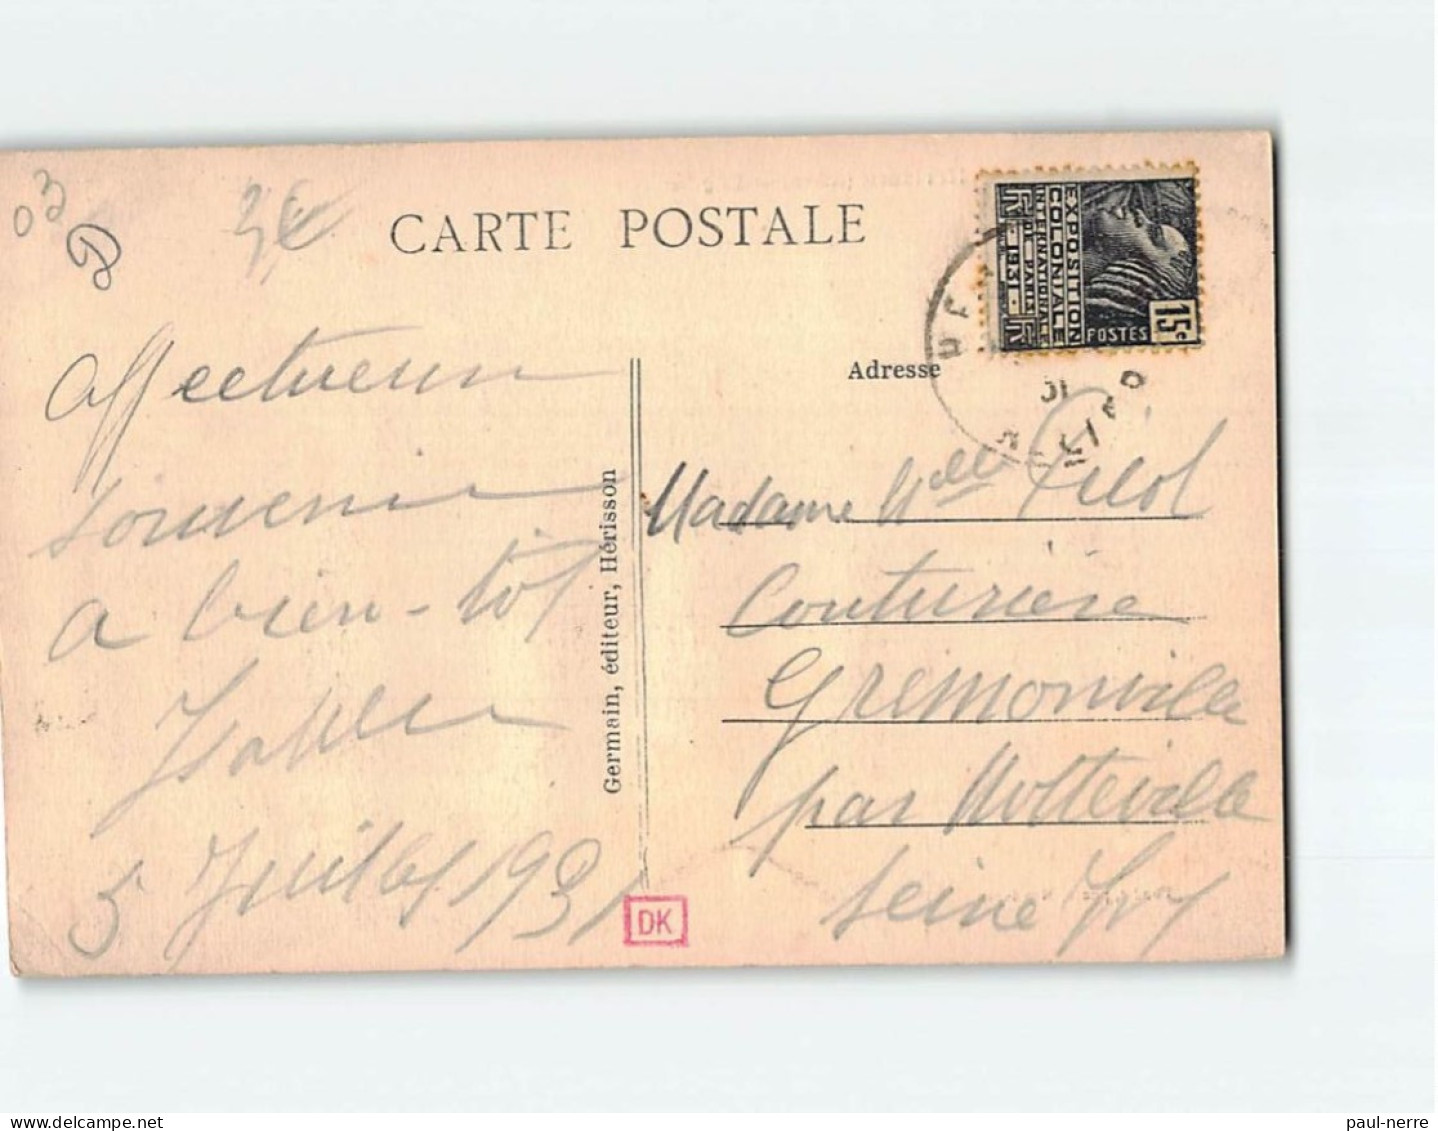 03
D
3€
CARTE POSTALE
EXPOSITION
COLONIALE
INTERNATIONALE
DE PARIS
1931
POSTES
15c
Affectueux
souvenir
a bien-tôt
5 Juillet 1931
Germain, éditeur, Hérisson
DK
Adresse
31
Madame Vve
Couturière
Grémonville
par Motteville
Seine Inf
paul-nerre